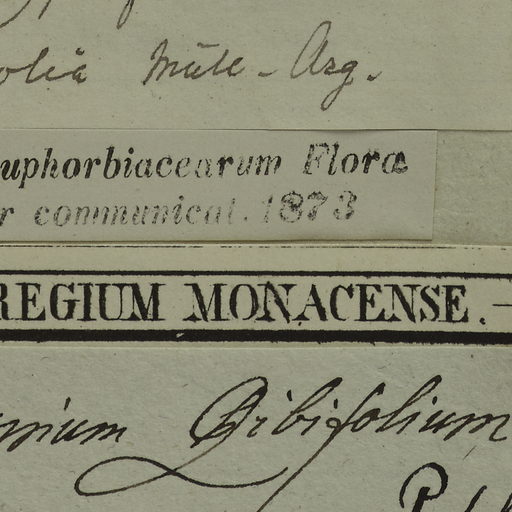 olia Müll-Arg.
uphorbiacearum Floræ
r communicat. 1873
REGIUM MONACENSE.
nium Gibifolium
P